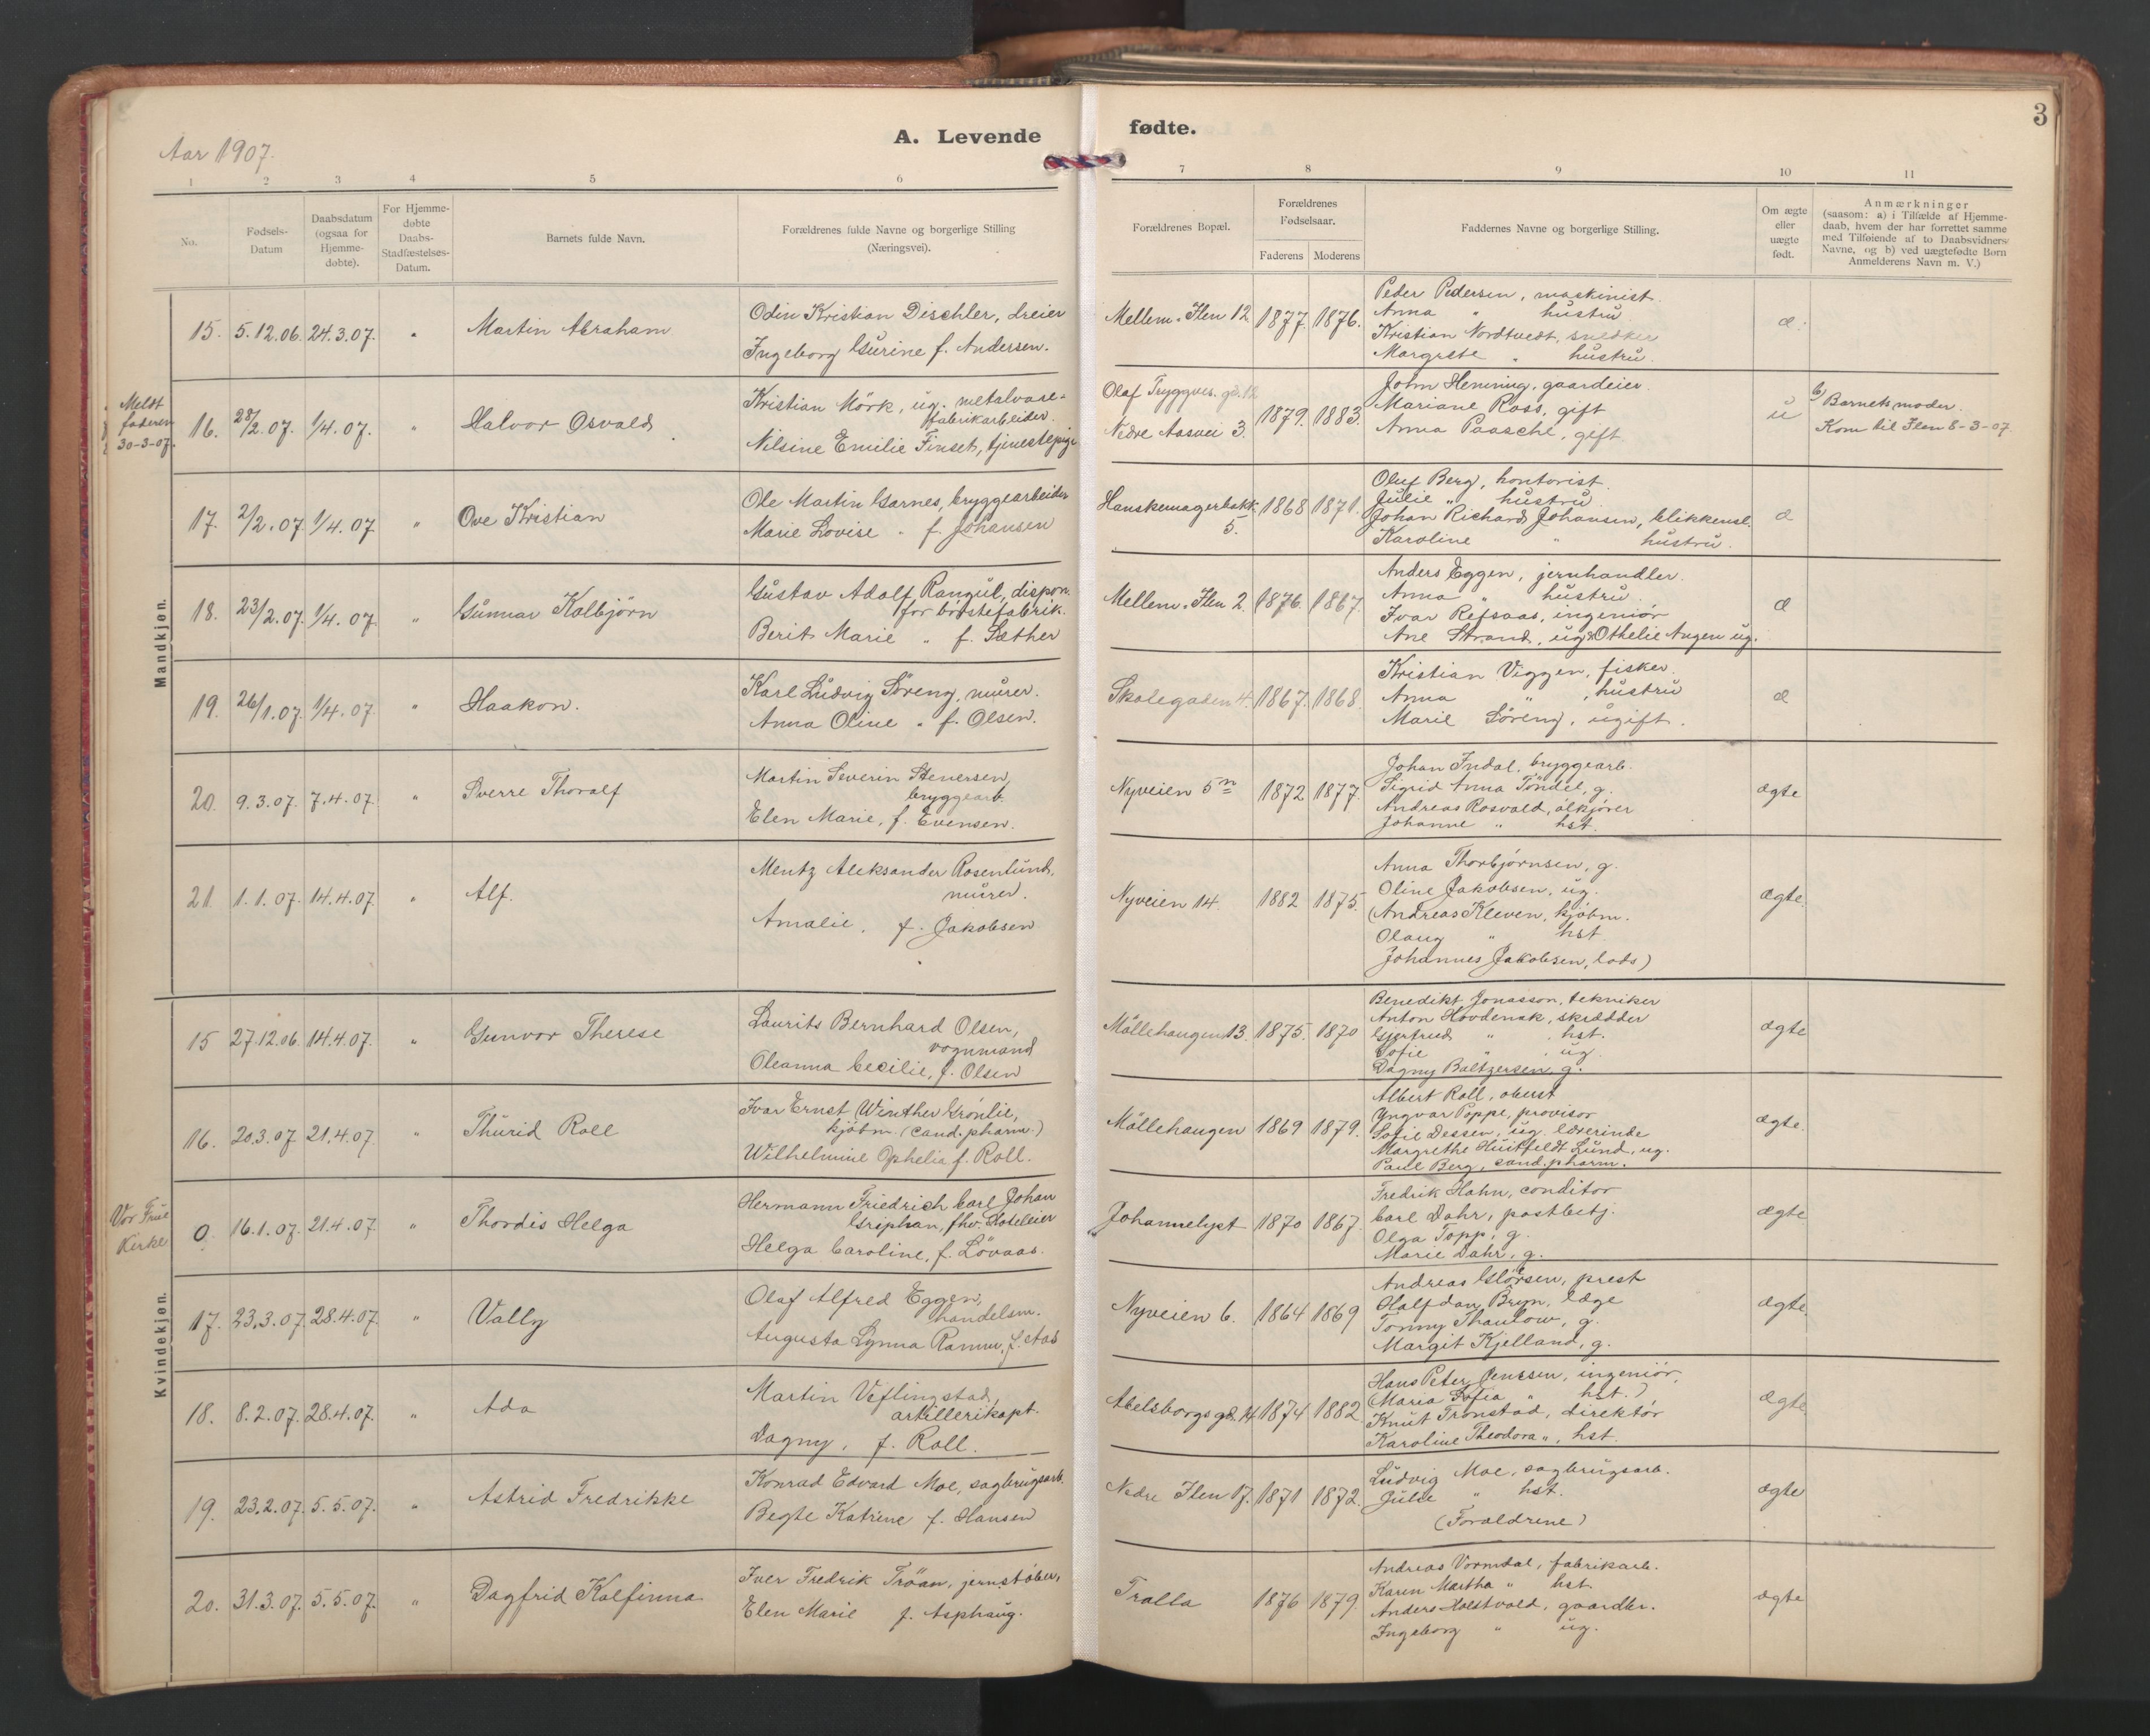 3
Aar 1907.
A. Levende fødte.
1 2 3 4 5 6 7 8 9 10 11
No.
Fødsels-
Datum
Daabsdatum
(ogsaa for
Hjemme-
døbte).
For Hjemme-
døbte
Daabs-
Stadfæstelses-
Datum.
Barnets fulde Navn.
Forældrenes fulde Navne og borgerlige Stilling
(Næringsvei).
Forældrenes Bopæl.
Forældrenes
Fødselsaar.
Faderens Moderens
Faddernes Navne og borgerlige Stilling.
Om ægte
eller
uægte
født.
Anmærkninger
(saasom: a) i Tilfælde af Hjemme-
daab, hvem der har forrettet samme
med Tilføiende af to Daabsvidners
Navne, og b) ved uægtefødte Børn
Anmelderens Navn m. V.)
Mandkjøn.
15. 5.12.06. 24.3.07. " Martin Abraham
Odin Kristian Dischler, dreier
Ingeborg Gurine f. Andersen.
Mellem-Ilen 12 1877. 1876.
Peder Pedersen, maskinist.
Anna " hustru
Kristian Nordtvedt, snedker
Margrete " hustru.
æ.
Meldt
faderen
30-3-07.
16. 28/2.07. 1/4.07. " Halvor Osvald
Kristian Mörk, ug. metalvare-
fabrikarbeider.
Nilsine Emilie Finset, tjenestepige
Olaf Tryggves. gd. 12
Nedre Aasvei 3. 1879. 1883.
John Henning, gaardeier.
Mariane Ross, gift
Anna Paasche, gift
ü
b) Barnets moder.
Kom til Ilen 8-3-07.
17. 2/2.07. 1/4.07 " Ove Kristian
Ole Martin Garnes, bryggearbeider
Marie Lovise " f. Johansen
Hanskemagerbakk.
5. 1868 1871.
Oluf Berg, kontorist.
Julie " hustru
Johan Richard Johansen, blikkensl.
Karoline " hustru.
æ
18. 23/2.07. 1/4.07. " Gunnar Kolbjörn
Gustav Adolf Rangul, dispon.
for börstefabrik.
Berit Marie " f. Sæther
Mellem-Ilen 2. 1876. 1867.
Anders Eggen, jernhandler.
Anna " hustru.
Ivar Refsaas, ingeniör
Ane Strand, ug. Othelie Augen ug.
æ
19. 26/1.07. 1/4.07. " Haakon.
Karl Ludvig Söreng, murer.
Anna Oline " f. Olsen.
Skolegaden 4. 1867. 1868.
Kristian Viggen, fisker.
Anna " , hustru
Marie Söreng, ugift.
æ
20. 9.3.07. 7.4.07. " Sverre Thoralf
Martin Severin Stenersen,
bryggearb.
Elen Marie, f. Evensen.
Nyveien 5n 1872 1877.
Johan Indal, bryggearb.
Sigrid Anna Töndel, g.
Andreas Rosvald, ölkjörer
Johanne " hst.
ægte
21. 1.1.07. 14.4.07. " Alf.
Mentz Aleksander Rosenlund,
murer.
Amalie, f. Jakobsen
Nyveien 14. 1882 1875.
Anna Thorbjörnsen, g.
Oline Jakobsen, ug.
(Andreas Kleven, kjöbm.
Olaug " hst.
Johannes Jakobsen, lods)
ægte.
Kvindekjøn.
15 27.12.06. 14.4.07. " Gunvor Therese
Laurits Bernhard Olsen,
vognmand
Oleanna Cecilie, f. Olsen
Möllehaugen 13. 1875. 1870
Benedikt Jonasson, tekniker
Anton Hovdenak, skrædder
Gjertrud " , hst.
Sofie " , ug.
Dagny Baltzersen, g.
ægte
16. 20.3.07. 21.4.07. " Thurid Roll
Ivar Ernst Winther Grönlie,
kjöbm. (cand. pharm.)
Wilhelmine Ophelia f. Roll.
Möllehaugen 1869 1879.
Albert Roll, oberst
Yngvar Poppe, provisor
Sofie Dessen, ug. lærerinde
Margrethe Huitfeldt Lund, ug.
Paul Berg, cand. pharm.
ægte.
Vor Frue
Kirke
0. 16.1.07. 21.4.07. " Thordis Helga
Hermann Friedrich Carl Johan
Griphan, fhv. Hoteleier
Helga Caroline, f. Lövaas.
Johannelyst 1870 1867.
Fredrik Hahn, conditor
Carl Dahr, postbetj.
Olga Topp, g.
Marie Dahr, g.
ægte
17. 23.3.07. 28.4.07. " Vally
Olaf Alfred Eggen,
handelsm.
Augusta Lynna Ramm, f. Aas
Nyveien 6. 1864 1869
Andreas Glörsen, prest
Halfdan Bryn, læge
Tonny Thaulow, g.
Margit Kjelland, g.
ægte.
18. 8.2.07. 28.4.07. " Ada
Martin Veflingstad,
artillerikapt.
Dagny, f. Roll.
Abelsborgs gd. 14 1874 1882
Hans Peter Jenssen, ingeniör,
(Maria Sofia " hst.)
Knut Tronstad, direktör
Karoline Theodora ", hst.
ægte.
19. 23.2.07. 5.5.07. " Astrid Fredrikke
Konrad Edvard Moe, sagbrugsarb.
Begte Katrine f. Hansen
Nedre Ilen 17. 1871 1872.
Ludvig Moe, sagbrugsarb.
Julie " hst.
(Forældrene)
ægte
20. 31.3.07. 5.5.07. " Dagfrid Kolfinna
Iver Fredrik Tröan, jernstöber,
Elen Marie f. Asphaug.
Trolla 1876 1879.
Andreas Vormdal, fabrikarb.
Karen Martha " hst.
Anders Holstvold, gaardbr.
Ingeborg " ug.
ægte